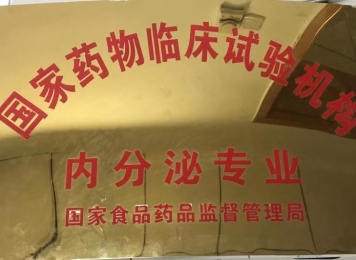 国家药物临床试验机构
内分泌专业
国家食品药品监督管理局